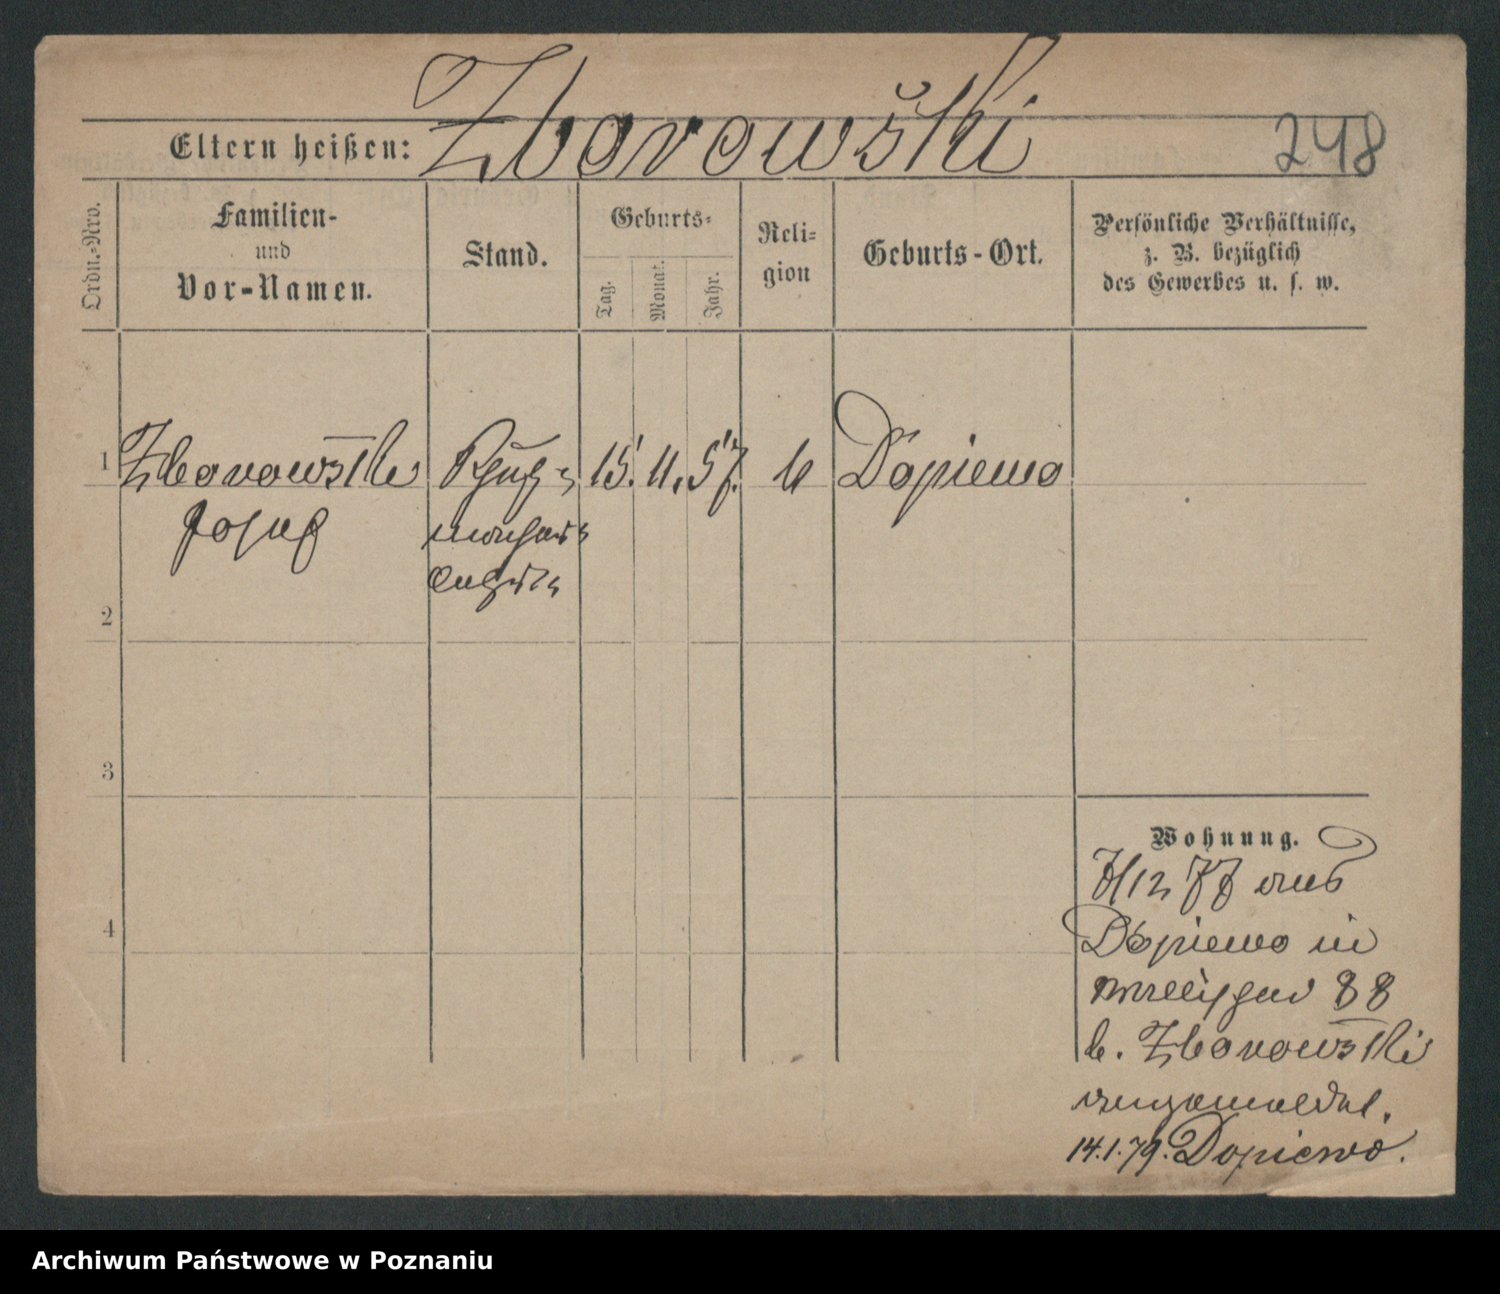 Zborowski
248
Eltern heißen:
Ordn.-Nro.
Familien-
und
Vor-Namen.
Stand.
Geburts-
Tag.
Monat.
Jahr.
Reli-
gion
Geburts-Ort.
Persönliche Verhältnisse,
z. B. bezüglich
des Gewerbes u. s. w.
1
Zborowski
Josef
15. 11. 57.
Dopiewo
2
3
4
Wohnung.
aus
Dopiewo in
88
b. Zborowski
angemeldet.
14.1.79. Dopiewo.
Archiwum Państwowe w Poznaniu